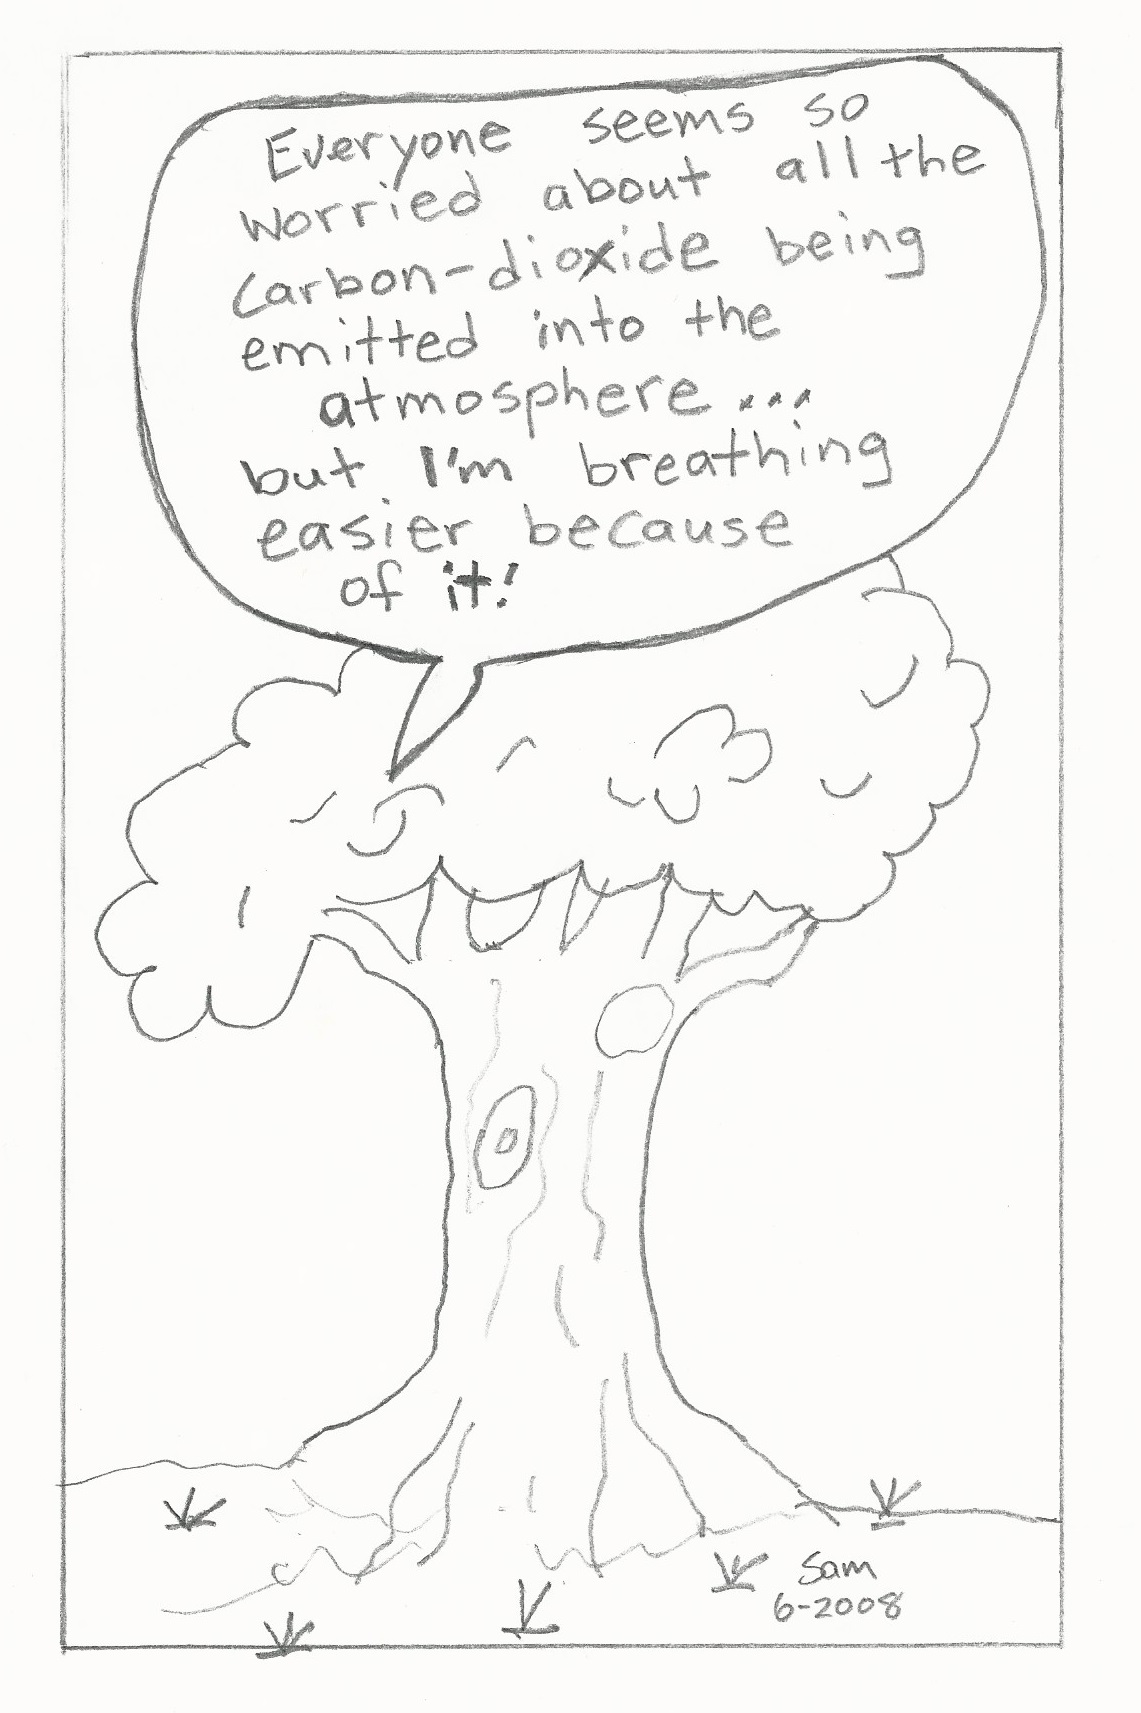 Everyone seems so
worried about all the
carbon-dioxide being
emitted into the
atmosphere...
but I'm breathing
easier because
of it!
Sam
6-2008